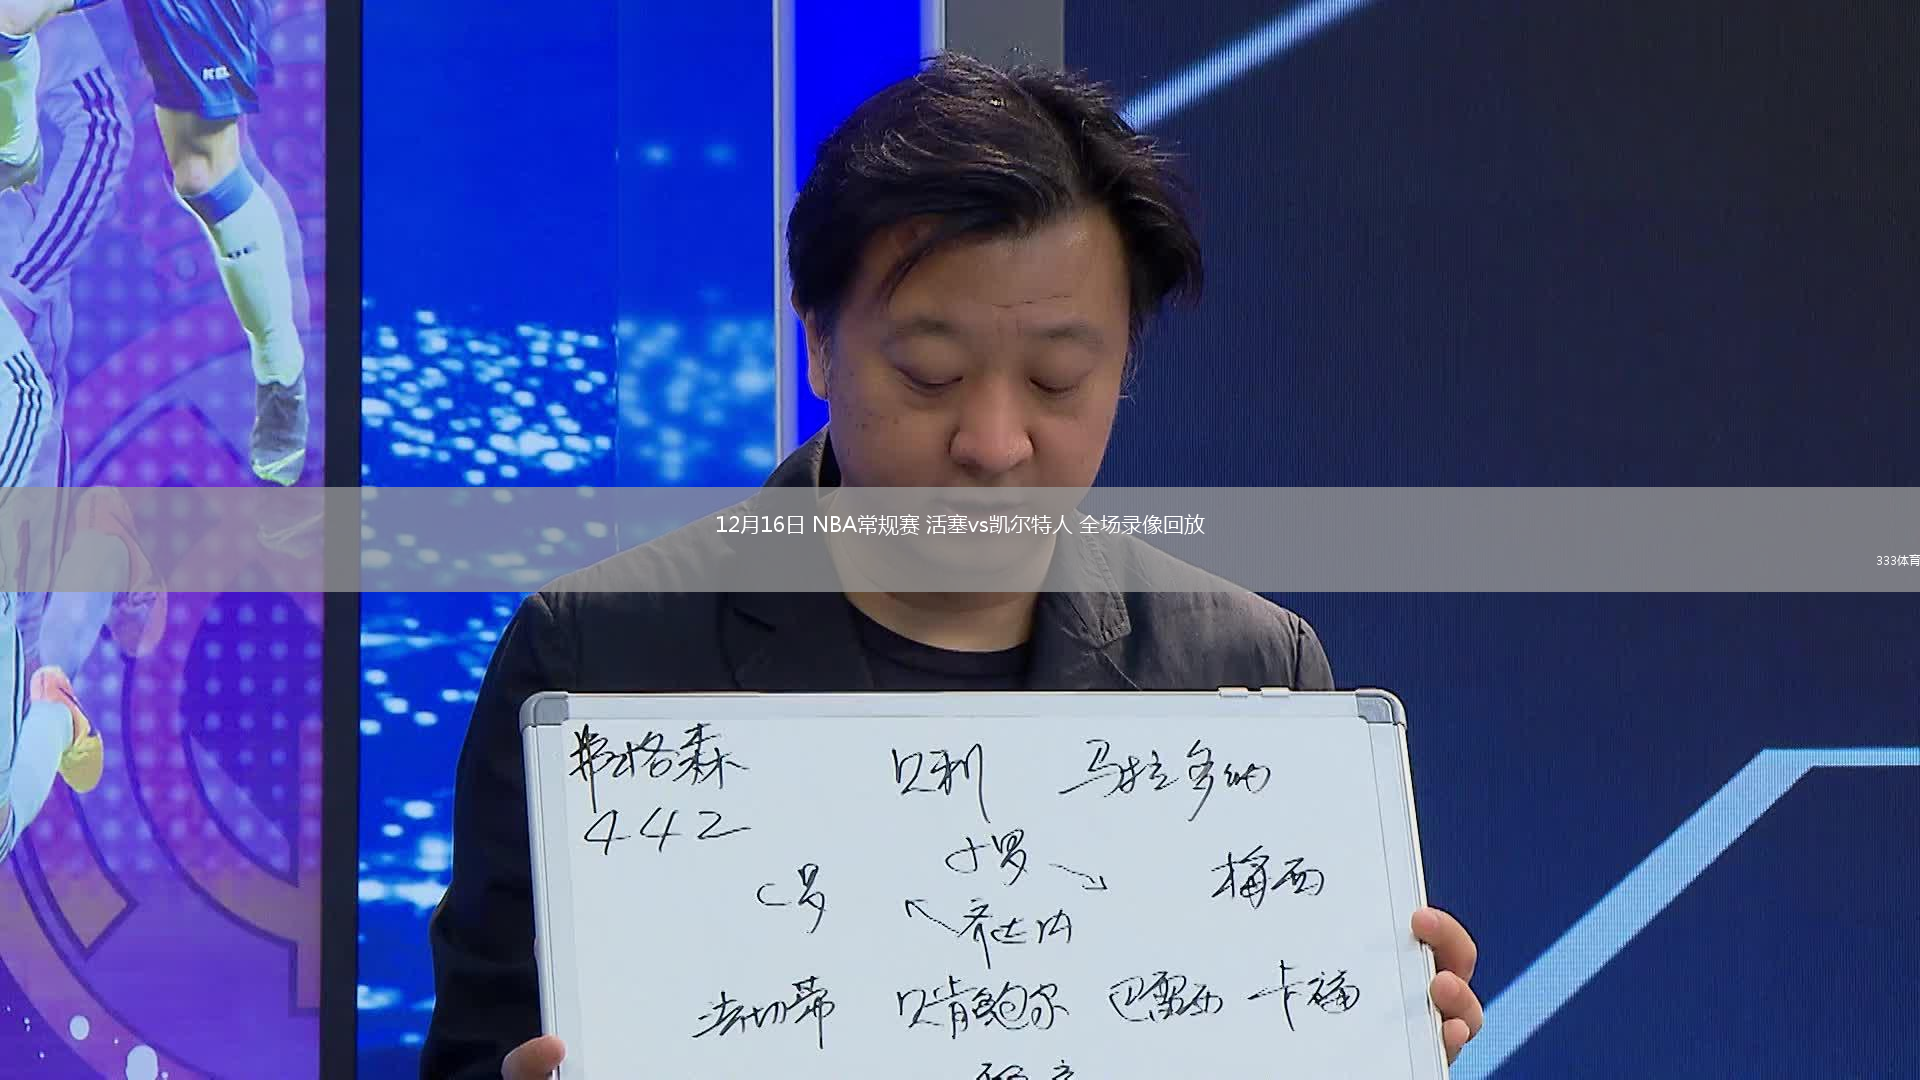 KEL
12月16日 NBA常规赛 活塞vs凯尔特人 全场录像回放
333体育
弗格森 贝利 马拉多纳
442
小罗
C罗 梅西
齐达内
法切蒂 贝肯鲍尔 巴雷西 卡福